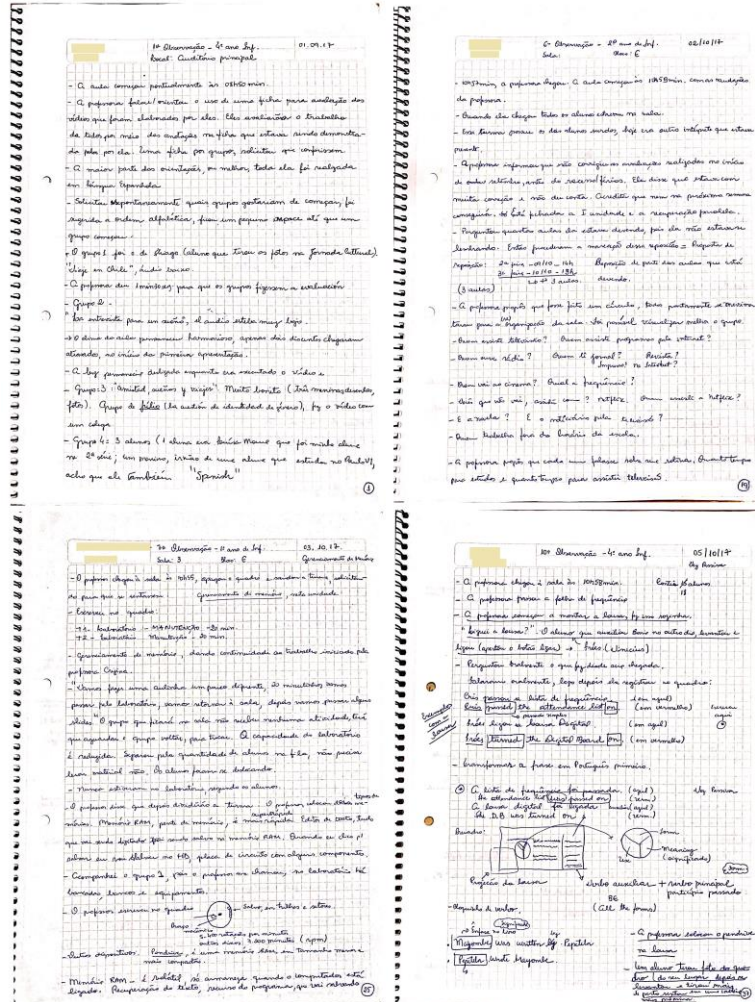 1ª Observação - 4º ano Inf. 01.09.17
Local: Auditório principal
- A aula começou pontualmente às 08h50min.
- A professora falou/orientou o uso de uma ficha para avaliação dos
vídeos que foram elaborados por eles. Eles avaliarão o trabalho
de todos por meio das anotações na ficha que estava sendo demonstra-
da por ela. Uma ficha por grupo, solicitou que
- A maior parte das orientações, ou melhor, toda ela foi realizada
em Língua Espanhola
- Solicitou espontaneamente quais grupos gostariam de começar, foi
sugerida a ordem alfabética, ficou um pequeno espaço até que um
grupo começou.
- O grupo 1 foi o de Thiago (aluno que tirou as fotos na Jornada Cultural)
en Chile", áudio baixo.
- A professora deu 1 minuto para que os grupos fizessem a evaluación
- Grupo 2 -
el audio estaba muy bajo.
→ O clima da aula permaneceu harmonioso, apenas dois discentes chegaram
atrasados, no início da primeira apresentação.
- A luz permaneceu desligada enquanto era executado o vídeo e
- Grupo: 3 "amistad, sueños y viajes" Muito bonito (três meninas,
fotos). Grupo de (la cuestión de identidad de género), fez o vídeo com
um colega
- Grupo 4: 3 alunos (1 aluna era que foi minha aluna
na 2ª série; um menino, irmão de uma aluna que estuda no Paulo VI,
acho que ele também "Spanish"
6ª Observação - 2º ano de Inf. 02/10/17
Sala: Bloco: E
- 10h57min, a professora chegou. A aula começou às 10h58min. com a saudação
da professora.
- Quando ela chegou todos os alunos estavam na sala.
- Essa turma possui os dois alunos surdos, hoje era outro intérprete que estava
presente.
- A professora informou que não corrigiu as avaliações realizadas no início
de setembro, antes do recesso/férias. Ela disse que estava com
muita correção e não deu conta. Acredita que na próxima semana
conseguirá. Só está faltando a I unidade e a recuperação paralela.
- Perguntou quantas aulas ela estava devendo, pois ela não estava se
lembrando. Então procederam a marcação dessa reposição = Proposta de
reposição: 2ª feira - 09/10 - 16h Reposição de parte das aulas que está
3ª feira - 10/10 - 13h devendo.
(3 aulas)
- A professora propôs que fosse feito um círculo, todos
para a organização da sala. Foi possível visualizar melhor o grupo.
- Quem assiste televisão? Quem assiste programas pela internet?
- Quem ouve rádio? Quem lê jornal? Revista?
Impresso? na Internet?
- Quem vai ao cinema? Qual a frequência?
- Dos que não vai, assiste como? Netflix. Quem assiste a Netflix?
- E a novela? E o noticiário pela televisão?
- Quem trabalha fora do horário da escola.
- A professora propôs que cada um falasse sobre sua rotina. Quanto tempo
para estudos e quanto tempo para assistir televisão.
7ª Observação - 1º ano de Inf. 03.10.17
Sala: 3 Bloco: E Gerenciamento de Memória
- O professor chegou à sala às 10h55, apagou o quadro e saudou a turma, solicitan-
do para que se sentassem Gerenciamento de memória, nesta unidade
- Escreveu no quadro:
T1 - Laboratório - MANUTENÇÃO - 20 min.
T2 - Laboratório Manutenção - 20 min.
- Gerenciamento de memória, dando continuidade ao trabalho iniciado pela
professora
- "Vamos fazer uma aulinha um pouco diferente, 20 minutinhos vamos
passar pelo laboratório, vamos retornar à sala, depois vamos passar alguns
slides" O grupo que ficará na sala não recebeu nenhuma atividade, terá
que aguardar o grupo voltar, para trocar. A capacidade do laboratório
é reduzida. Separou pela quantidade de alunos na fila, não precisa
levar material não. Os alunos foram se deslocando.
- Nunca estiveram no laboratório, segundo os alunos.
- O professor disse que depois dividiria a turma. O professor colocou tipos de me-
mórias. Memória RAM, pente de memória, é mais rápida. Editor de texto, tudo
que vai sendo digitado fica sendo salvo na memória RAM. Quando eu clico p/
salvar eu vou salvar no HD, placa de circuito com alguns componentes.
- Acompanhei o grupo 2, pois o professor me chamou, no laboratório há
bancadas, bancos e equipamentos.
- O professor escreveu no quadro Salvar, em trilhas e setores.
5.400 rotação por minuto
7.200 minutos (rpm)
- Outros dispositivos. Pendrive, é uma memória flash, em tamanho menor e
mais compacta
- Memória RAM - é volátil, só armazena quando o computador está
ligado. Recuperação do texto, recurso do programa, que vai salvando
10ª Observação - 4º ano Inf. 05/10/17
Voz Passiva
- A professora chegou à sala às 10h58min. Contei 16 alunos
- A professora passou a folha de frequência
- A professora começou a montar a lousa, fez sozinha.
"Liguei a lousa?". O aluno que auxiliou no outro dia, levantou e
ligou (apertou o botão ligar) → (Vinicius)
- Perguntou oralmente o que fez desde sua chegada.
Falaram oralmente, logo depois ela registrou no quadro:
passou a lista de frequência (em azul)
passed the attendance list on (em vermelho)
passado simples
ligou a Lousa Digital (em azul)
turned the Digital Board on (em vermelho)
- transformar a frase em Português primeiro.
A lista de frequência foi passada (azul) Voz Passiva
The attendance list was passed on (verm.)
A lousa digital foi ligada (azul)
The DB was turned on (verm.)
Quadro:
Form
Meaning
(significado)
Use
Projeção da lousa
verbo auxiliar + verbo principal
particípio passado
BE
(All the forms)
Mayombe was written by Pepetela
Pepetela wrote Mayombe.
- A professora colocou o pendrive
na lousa
- Um aluno tirou foto do qua-
dro